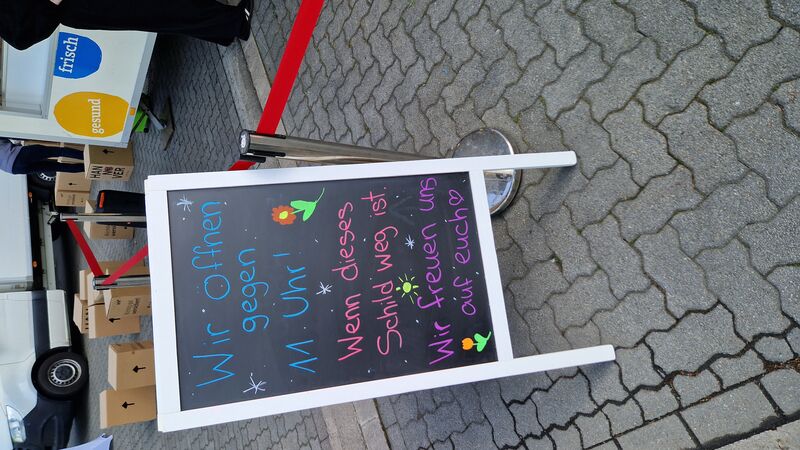 Wir öffnen
gegen
11 Uhr!
Wenn dieses
Schild weg ist.
Wir freuen uns
auf euch♡
frisch
gesund